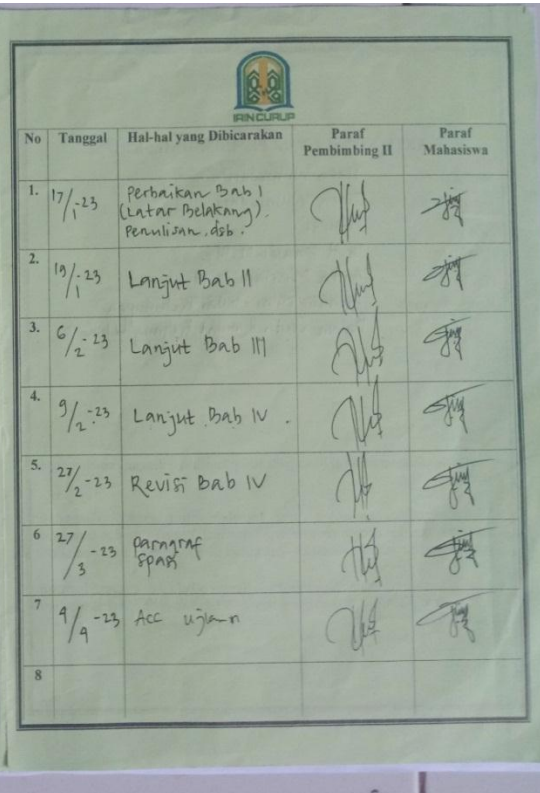 IAIN CURUP
No Tanggal Hal-hal yang Dibicarakan Paraf Pembimbing II Paraf Mahasiswa
1. 17/1-23 Perbaikan Bab I
(Latar Belakang).
Penulisan, dsb.
2. 19/1-23 Lanjut Bab II
3. 6/2-23 Lanjut Bab III
4. 9/2-23 Lanjut Bab IV.
5. 27/2-23 Revisi Bab IV
6 27/3-23 paragraf
spasi
7 4/4-23 Acc ujian
8